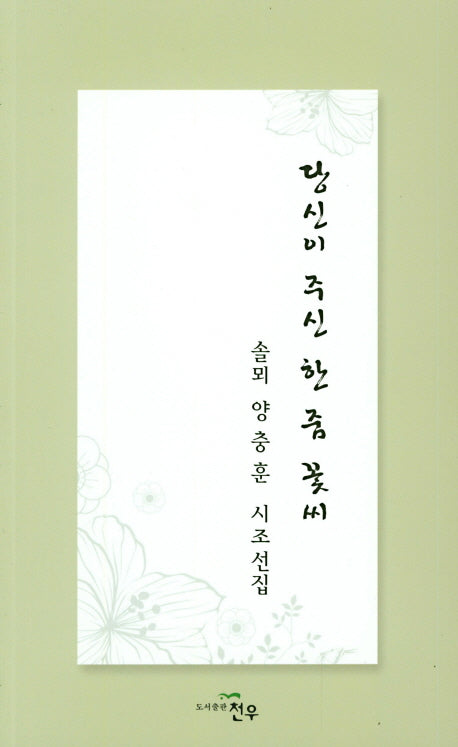 당신이 주신 한 줌 꽃씨
솔뫼 양충훈 시조선집
도서출판 천우